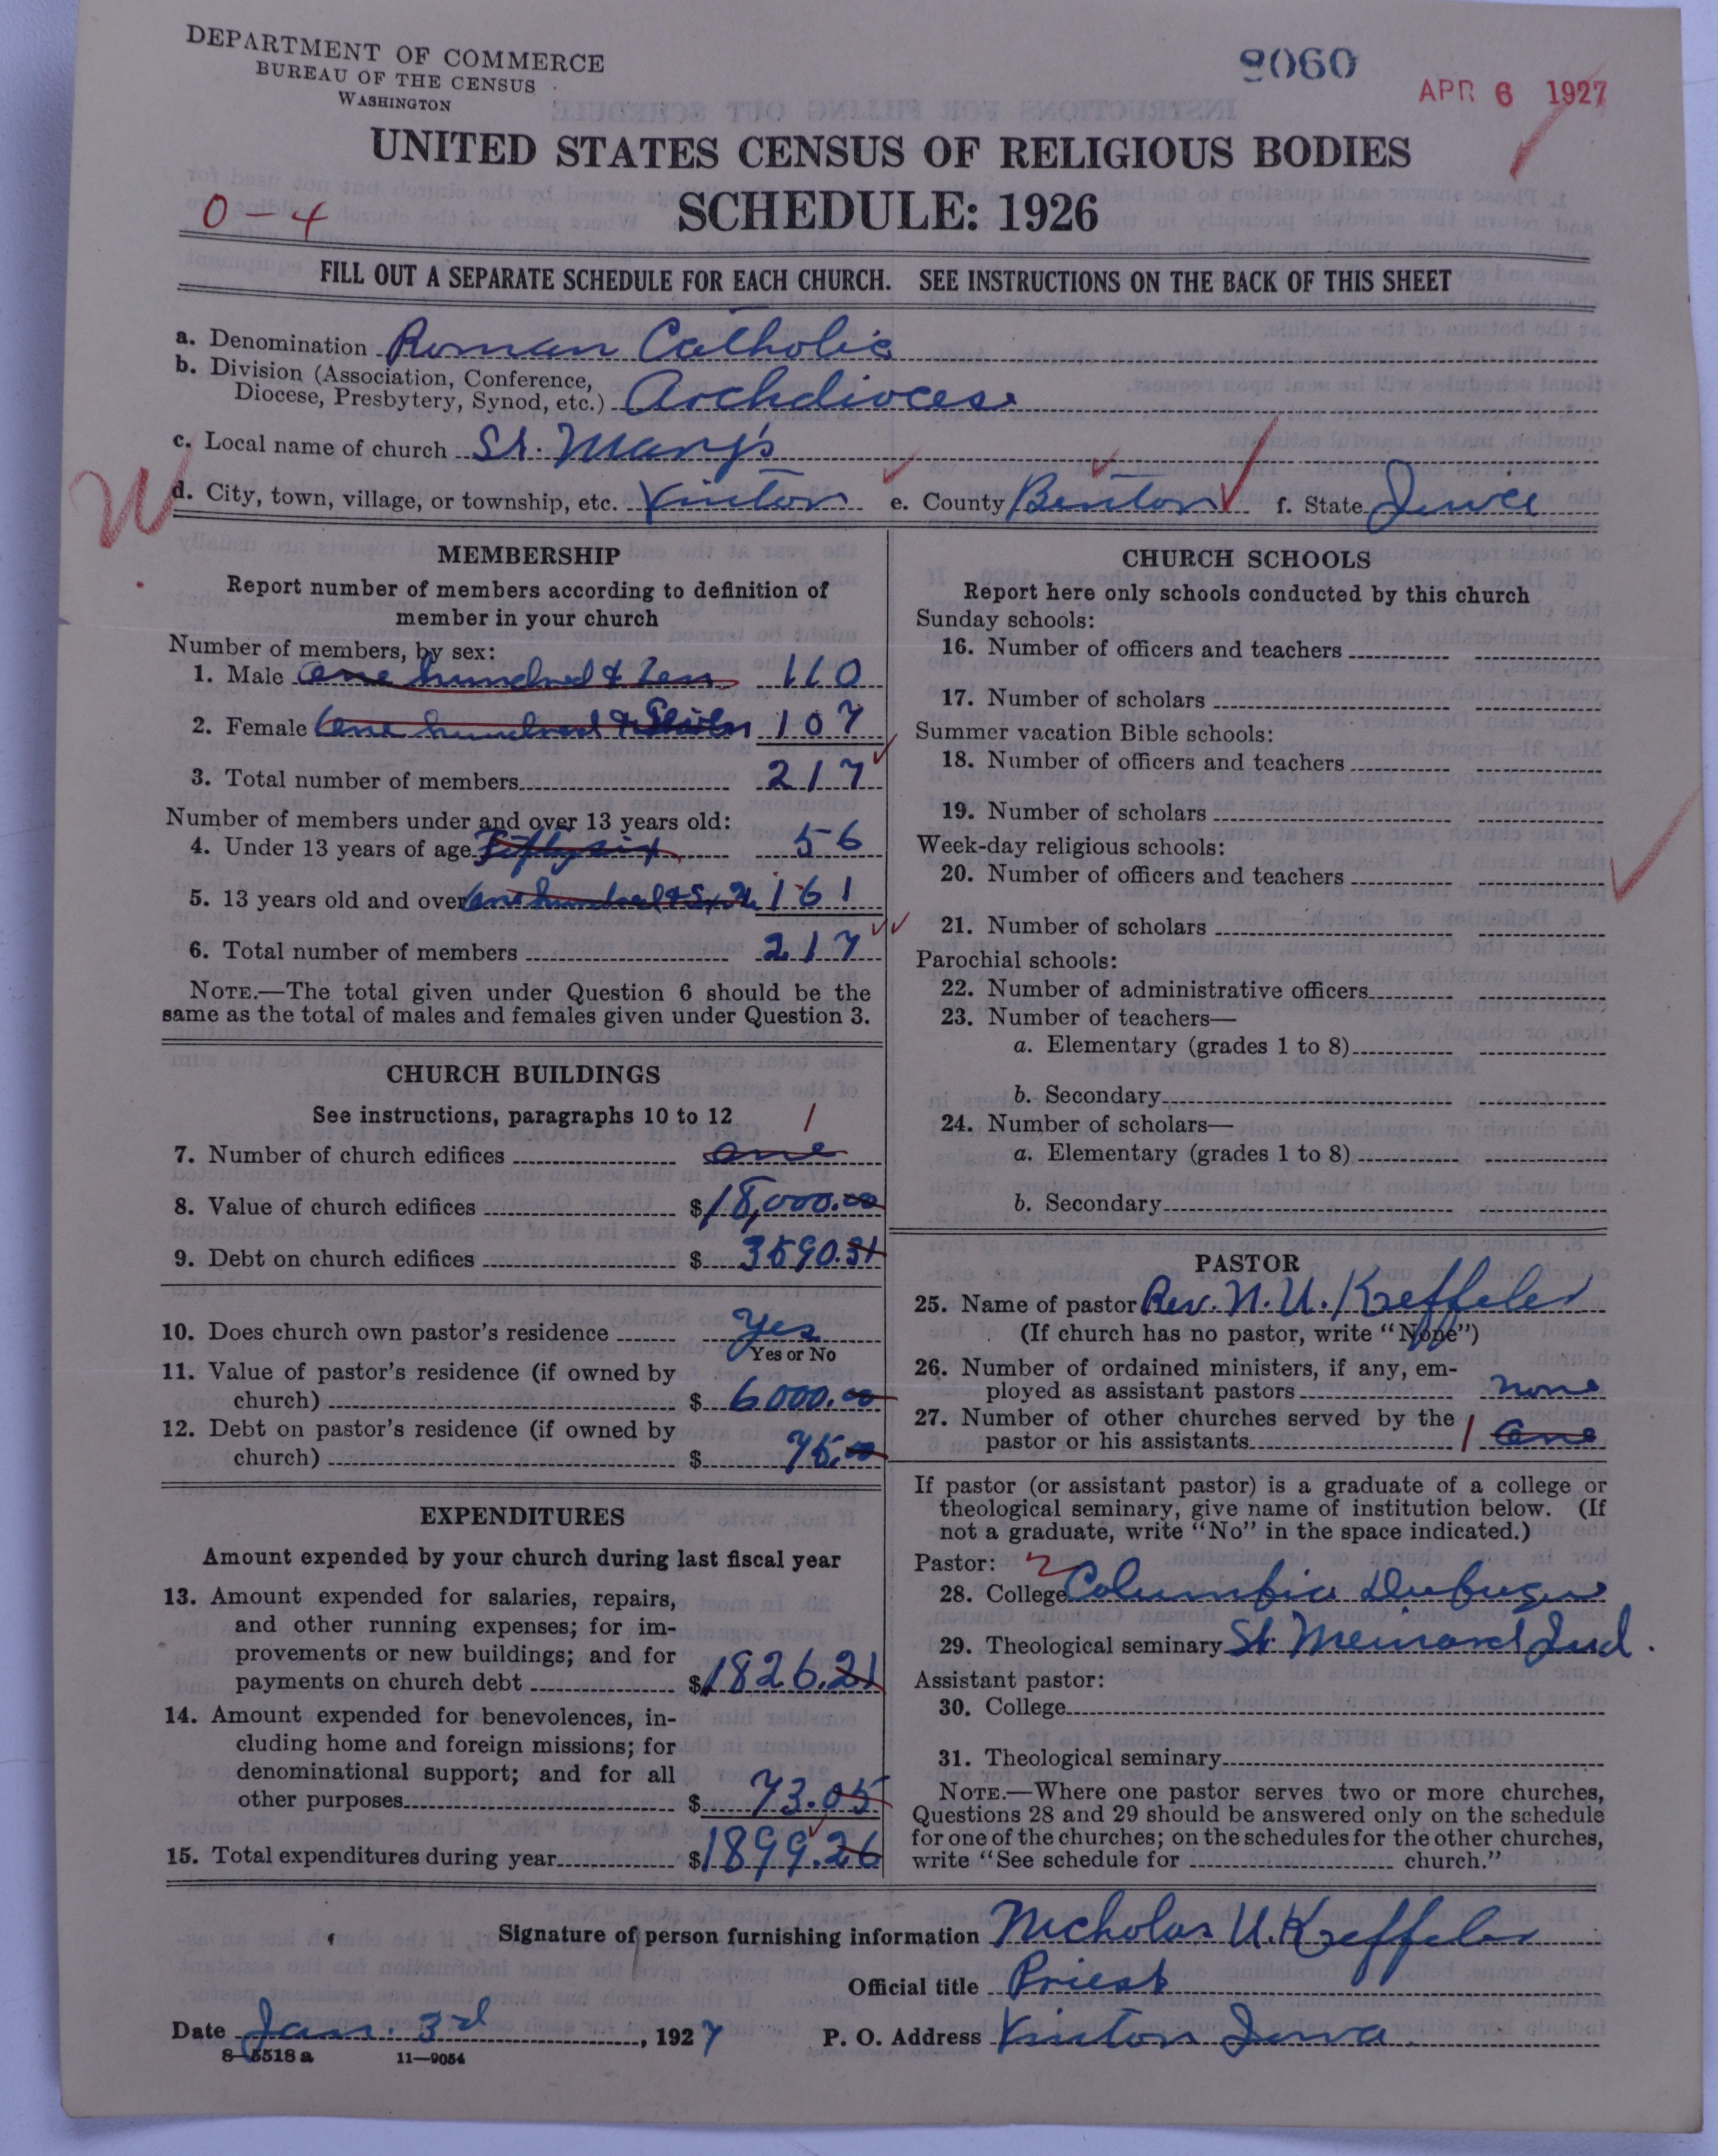 DEPARTMENT OF COMMERCE
BUREAU OF THE CENSUS
WASHINGTON
9060
APR 6 1927
UNITED STATES CENSUS OF RELIGIOUS BODIES
SCHEDULE: 1926
0-4
FILL OUT A SEPARATE SCHEDULE FOR EACH CHURCH. SEE INSTRUCTIONS ON THE BACK OF THIS SHEET
a. Denomination Roman Catholic
b. Division (Association, Conference,
Diocese, Presbytery, Synod, etc.) Archdiocese
c. Local name of church St. Mary's
d. City, town, village, or township, etc. Vinton e. County Benton f. State Iowa
W
MEMBERSHIP
Report number of members according to definition of
member in your church
Number of members, by sex:
1. Male one hundred & ten 110
2. Female One hundred & Seven 107
3. Total number of members 217
Number of members under and over 13 years old:
4. Under 13 years of age Fifty six 56
5. 13 years old and over One hundred & 161
6. Total number of members 217
NOTE.—The total given under Question 6 should be the
same as the total of males and females given under Question 3.
CHURCH BUILDINGS
See instructions, paragraphs 10 to 12
1
7. Number of church edifices one
8. Value of church edifices $18,000.00
9. Debt on church edifices $ 3590.31
10. Does church own pastor's residence Yes
Yes or No
11. Value of pastor's residence (if owned by
church) $ 6000.00
12. Debt on pastor's residence (if owned by
church) $ 75.00
EXPENDITURES
Amount expended by your church during last fiscal year
13. Amount expended for salaries, repairs,
and other running expenses; for im-
provements or new buildings; and for
payments on church debt $1826.21
14. Amount expended for benevolences, in-
cluding home and foreign missions; for
denominational support; and for all
other purposes $ 73.05
15. Total expenditures during year $1899.26
CHURCH SCHOOLS
Report here only schools conducted by this church
Sunday schools:
16. Number of officers and teachers
17. Number of scholars
Summer vacation Bible schools:
18. Number of officers and teachers
19. Number of scholars
Week-day religious schools:
20. Number of officers and teachers
21. Number of scholars
Parochial schools:
22. Number of administrative officers
23. Number of teachers—
a. Elementary (grades 1 to 8)
b. Secondary
24. Number of scholars—
a. Elementary (grades 1 to 8)
b. Secondary
PASTOR
25. Name of pastor Rev. N. U. Kreffeler
(If church has no pastor, write "None")
26. Number of ordained ministers, if any, em-
ployed as assistant pastors none
27. Number of other churches served by the
pastor or his assistants 1 One
If pastor (or assistant pastor) is a graduate of a college or
theological seminary, give name of institution below. (If
not a graduate, write "No" in the space indicated.)
Pastor: 2
28. College Columbia Dubuque
29. Theological seminary St Meinard Ind.
Assistant pastor:
30. College
31. Theological seminary
NOTE.—Where one pastor serves two or more churches,
Questions 28 and 29 should be answered only on the schedule
for one of the churches; on the schedules for the other churches,
write "See schedule for church."
Signature of person furnishing information Nicholas U. Kreffeler
Official title Priest
Date Jan. 3rd, 1927 P. O. Address Vinton Iowa
8—5518a 11—9054